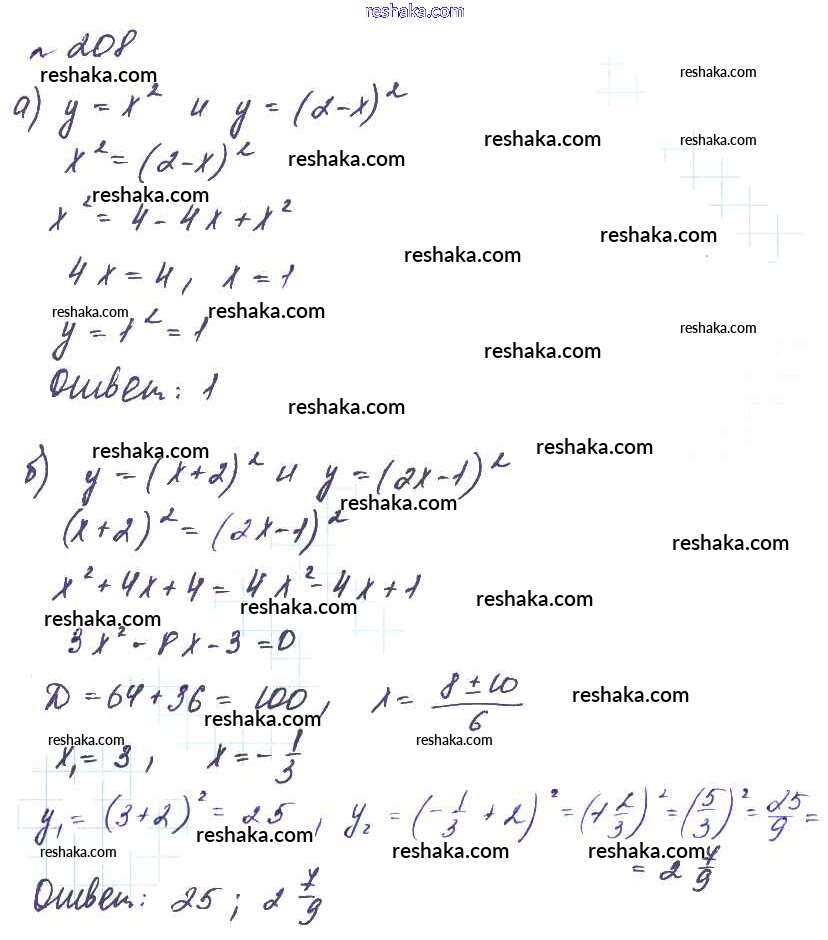 reshaka.com
№ 208
reshaka.com reshaka.com
а) y = x² и y = (2-x)²
reshaka.com reshaka.com
x² = (2-x)² reshaka.com
reshaka.com
x² = 4 - 4x + x² reshaka.com
reshaka.com
4x = 4, x = 1
reshaka.com reshaka.com reshaka.com
y = 1² = 1 reshaka.com
Ответ: 1
reshaka.com
reshaka.com reshaka.com
б) y = (x+2)² и y = (2x-1)²
reshaka.com
(x+2)² = (2x-1)² reshaka.com
x² + 4x + 4 = 4x² - 4x + 1
reshaka.com reshaka.com reshaka.com
3x² - 8x - 3 = 0
D = 64 + 36 = 100, x = (8 ± 10)/6 reshaka.com
reshaka.com
reshaka.com reshaka.com
x₁ = 3, x = -1/3
y₁ = (3+2)² = 25, y₂ = (-1/3 + 2)² = (1 2/3)² = (5/3)² = 25/9 =
reshaka.com reshaka.com reshaka.com reshaka.com
= 2 7/9
Ответ: 25; 2 7/9